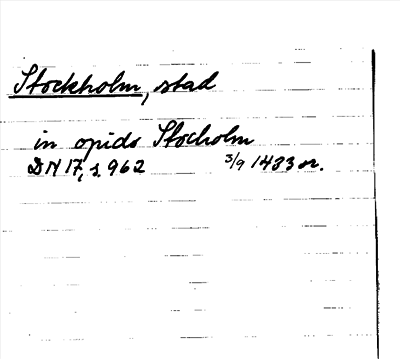 Stockholm, stad
in opido Stocholm
DN 17, s. 962 3/9 1483 or.